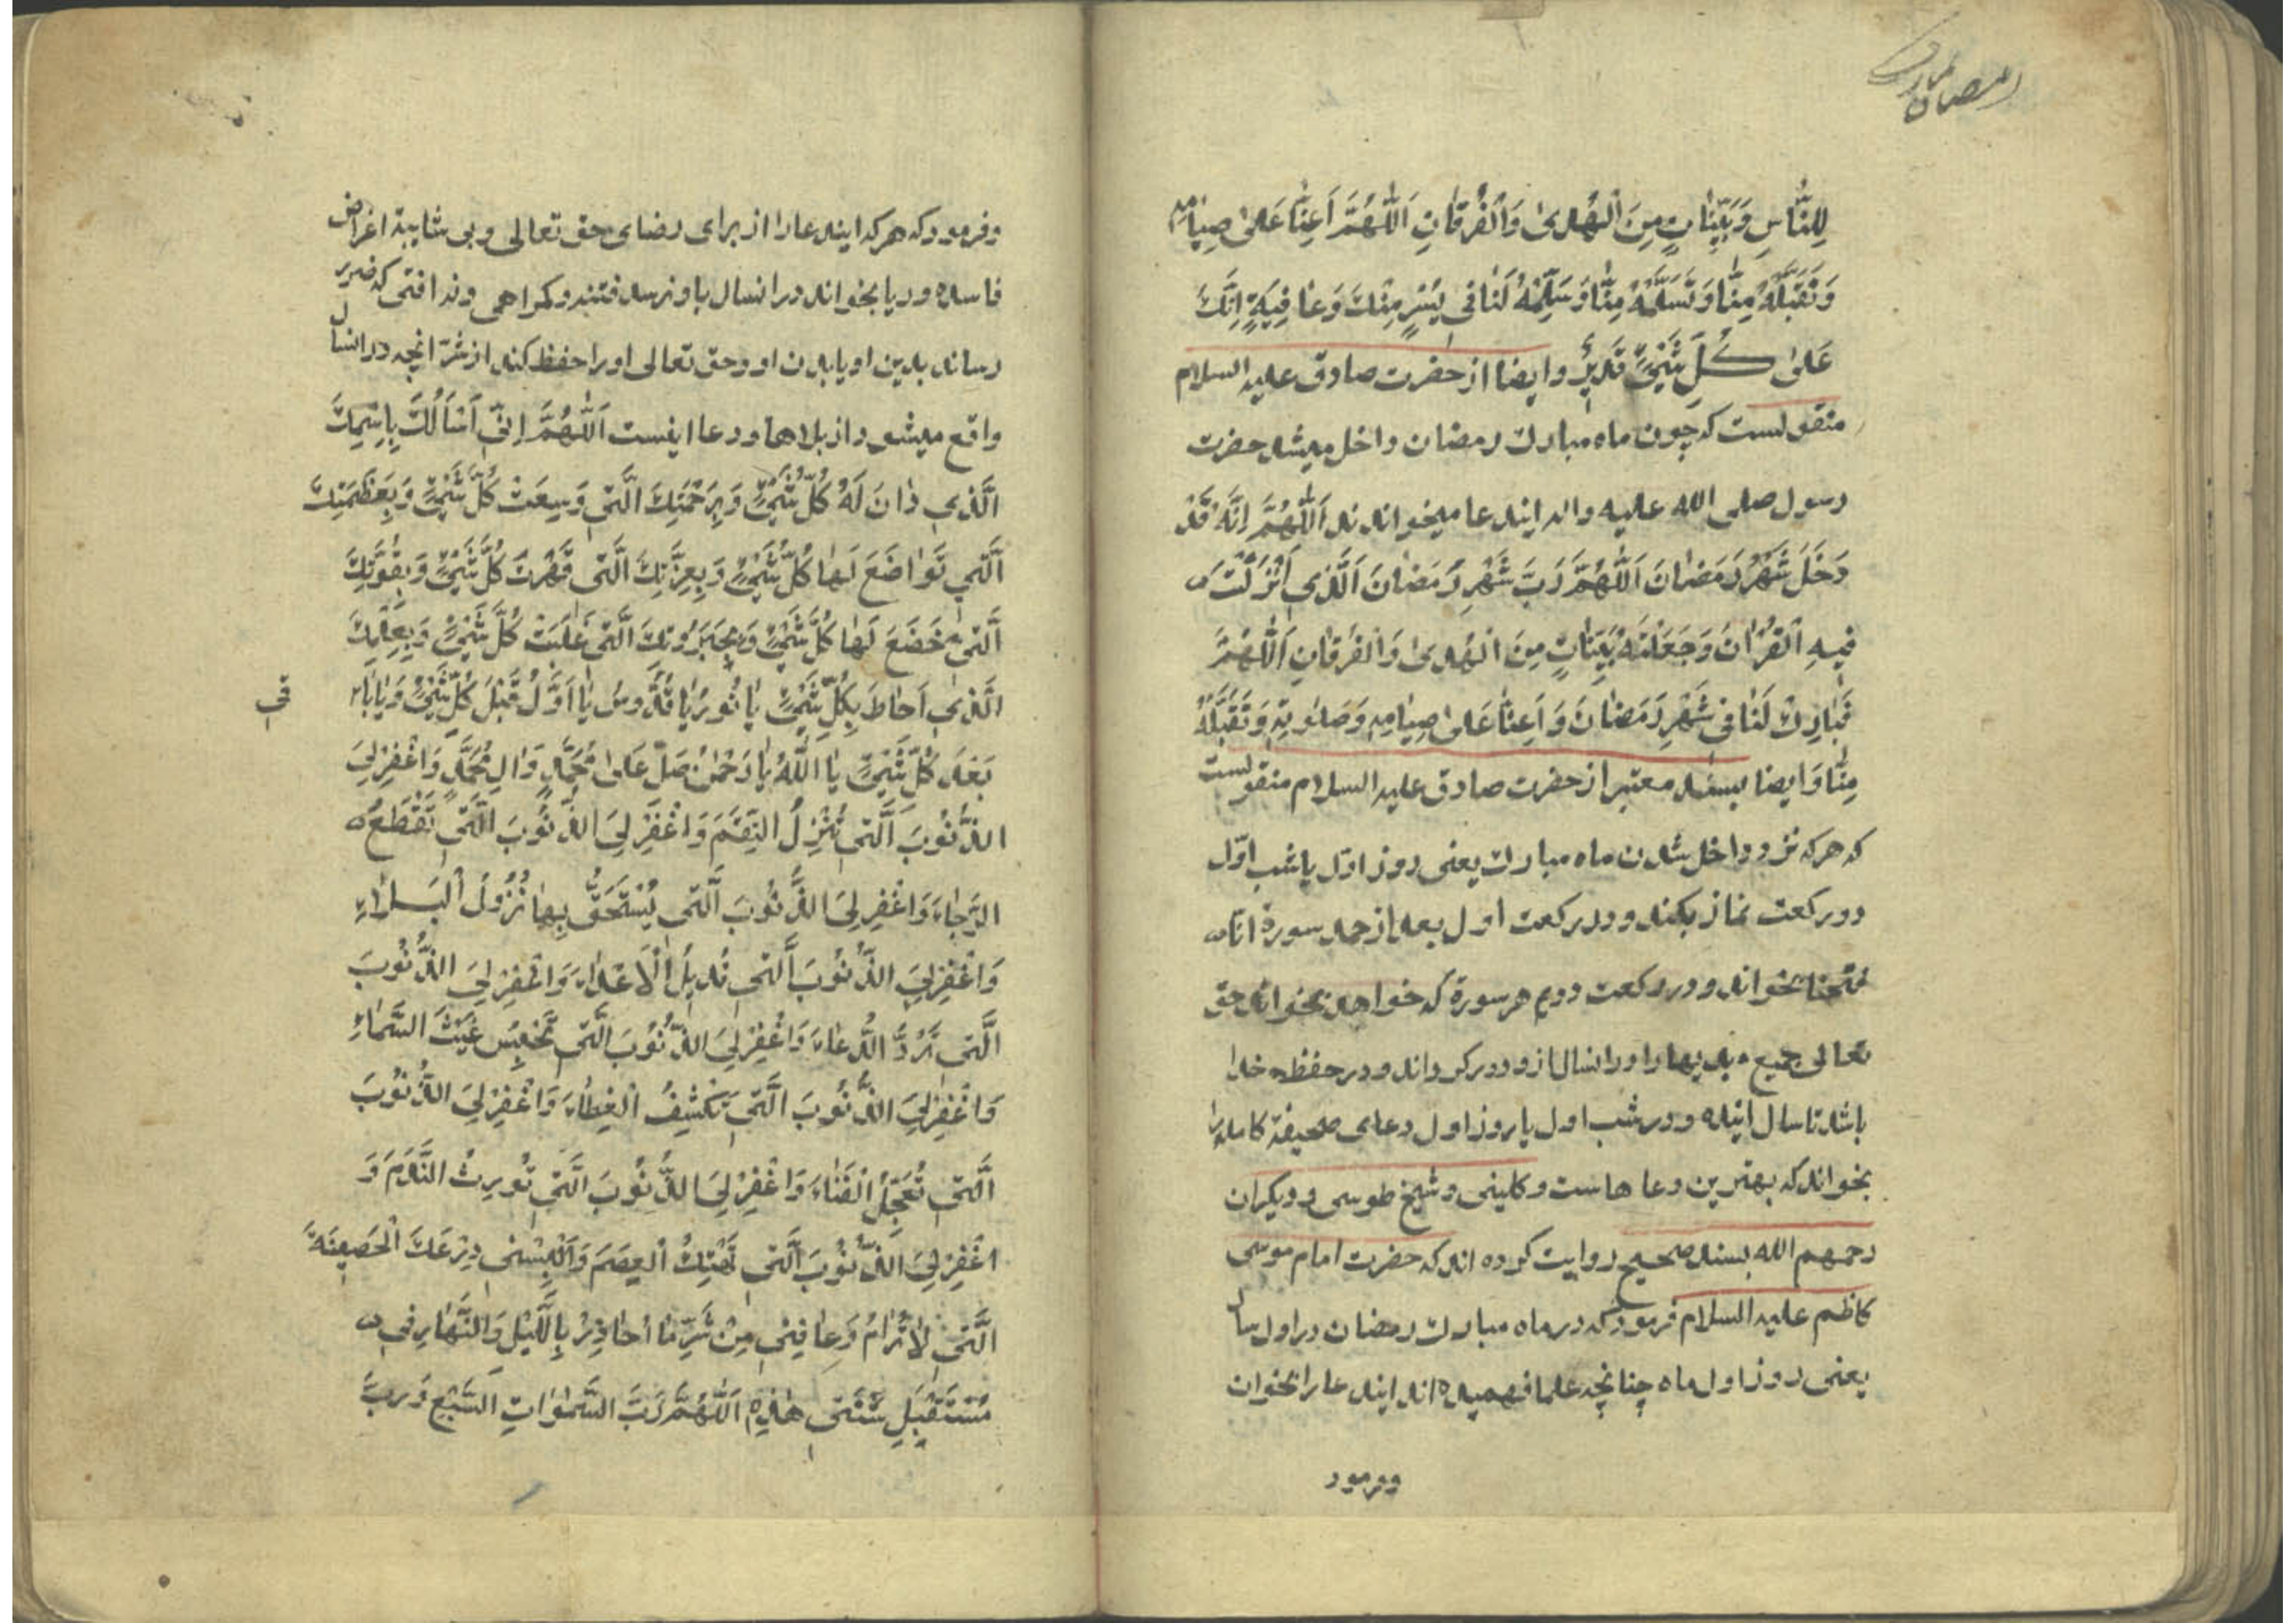 رمضان المبارک
لِلنَّاسِ وَبَيِّنَاتٍ مِنَ الْهُدىٰ وَالْفُرْقَانِ اَللّٰهُمَّ اَعِنَّا عَلىٰ صِيَامِهِ
وَتَقَبَّلْهُ مِنَّا وَتَسَلَّمْهُ مِنَّا وَسَلِّمْهُ لَنَا فِي يُسْرٍ مِنْكَ وَعَافِيَةٍ اِنَّكَ
عَلىٰ كُلِّ شَيْءٍ قَدِيرٌ وايضا از حضرت صادق عليه السلام
منقولست كه چون ماه مبارك رمضان داخل ميشد حضرت
رسول صلى الله عليه واله ايندعا ميخواندند اَللّٰهُمَّ اِنَّهُ قَدْ
دَخَلَ شَهْرُ رَمَضَانَ اَللّٰهُمَّ رَبَّ شَهْرِ رَمَضَانَ اَلَّذِي اَنْزَلْتَ
فِيهِ الْقُرْاٰنَ وَجَعَلْتَهُ بَيِّنَاتٍ مِنَ الْهُدىٰ وَالْفُرْقَانِ اَللّٰهُمَّ
فَبَارِكْ لَنَا فِي شَهْرِ رَمَضَانَ وَاَعِنَّا عَلىٰ صِيَامِهِ وَصَلَوَاتِهِ وَتَقَبَّلْهُ
مِنَّا وَايضا بسند معتبر از حضرت صادق عليه السلام منقولست
كه هركه نزد داخل شدن ماه مبارك يعنى روز اول يا شب اوّل
دو ركعت نماز بكند و در ركعت اول بعد از حمد سورهٔ انّا
فتحنا بخواند و در ركعت دويم هر سورهٔ كه خواهد بخواند حق
تعالى جميع بديها را در انسال ازو دور كرداند و در حفظ خدا
باشد تا سال اينده و در شب اول يا روز اول دعاى صحيفهٔ كامله را
بخواند كه بهترين دعاهاست و كلينى و شيخ طوسى و ديكران
رحمهم الله بسند صحيح روايت كرده اند كه حضرت امام موسى
كاظم عليه السلام فرمود كه در ماه مبارك رمضان در اول سال
يعنى روز اول ماه چنانچه علما فهميده اند ايندعا را بخوان
وفرمود
وفرمود كه هركه ايندعا را از براى رضاى حق تعالى و بى شايبهٔ اغراض
فاسده و ريا بخواند در انسال باو نرسد فتنه و كمراهى و نه افتى كه ضرر
رساند بدين او يا بدن او وحق تعالى او را حفظ كند از شرّ انچه در انسال
واقع ميشود از بلاها و دعا اينست اَللّٰهُمَّ اِنّي اَسْاَلُكَ بِاسْمِكَ
الَّذِي دَانَ لَهُ كُلُّ شَيْءٍ وَبِرَحْمَتِكَ الَّتِي وَسِعَتْ كُلَّ شَيْءٍ وَبِعَظَمَتِكَ
الَّتِي تَوَاضَعَ لَهَا كُلُّ شَيْءٍ وَبِعِزَّتِكَ الَّتِي قَهَرَتْ كُلَّ شَيْءٍ وَبِقُوَّتِكَ
الَّتِي خَضَعَ لَهَا كُلُّ شَيْءٍ وَبِجَبَرُوتِكَ الَّتِي غَلَبَتْ كُلَّ شَيْءٍ وَبِعِلْمِكَ
الَّذِي اَحَاطَ بِكُلِّ شَيْءٍ يَا نُورُ يَا قُدُّوسُ يَا اَوَّلُ قَبْلَ كُلِّ شَيْءٍ وَيَا بَا
قي
بَعْدَ كُلِّ شَيْءٍ يَا اَللّٰهُ يَا رَحْمٰنُ صَلِّ عَلىٰ مُحَمَّدٍ وَالِ مُحَمَّدٍ وَاغْفِرْ لِيَ
الذُّنُوبَ الَّتِي تُنْزِلُ النِّقَمَ وَاغْفِرْ لِيَ الذُّنُوبَ الَّتِي تَقْطَعُ
الرَّجَاءَ وَاغْفِرْ لِيَ الذُّنُوبَ الَّتِي يُسْتَحَقُّ بِهَا نُزُولُ الْبَلَاءِ
وَاغْفِرْ لِيَ الذُّنُوبَ الَّتِي تُدِيلُ الْاَعْدَاءَ وَاغْفِرْ لِيَ الذُّنُوبَ
الَّتِي تَرُدُّ الدُّعَاءَ وَاغْفِرْ لِيَ الذُّنُوبَ الَّتِي تَحْبِسُ غَيْثَ السَّمَاءِ
وَاغْفِرْ لِيَ الذُّنُوبَ الَّتِي تَكْشِفُ الْغِطَاءَ وَاغْفِرْ لِيَ الذُّنُوبَ
الَّتِي تُعَجِّلُ الْفَنَاءَ وَاغْفِرْ لِيَ الذُّنُوبَ الَّتِي تُورِثُ النَّدَمَ وَ
اغْفِرْ لِيَ الذُّنُوبَ الَّتِي تَهْتِكُ الْعِصَمَ وَاَلْبِسْنِي دِرْعَكَ الْحَصِينَةَ
الَّتِي لَا تُرَامُ وَعَافِنِي مِنْ شَرِّ مَا اُحَاذِرُ بِاللَّيْلِ وَالنَّهَارِ فِي
مُسْتَقْبِلِ سَنَتِي هٰذِهِ اَللّٰهُمَّ رَبَّ السَّمٰوَاتِ السَّبْعِ وَرَبَّ